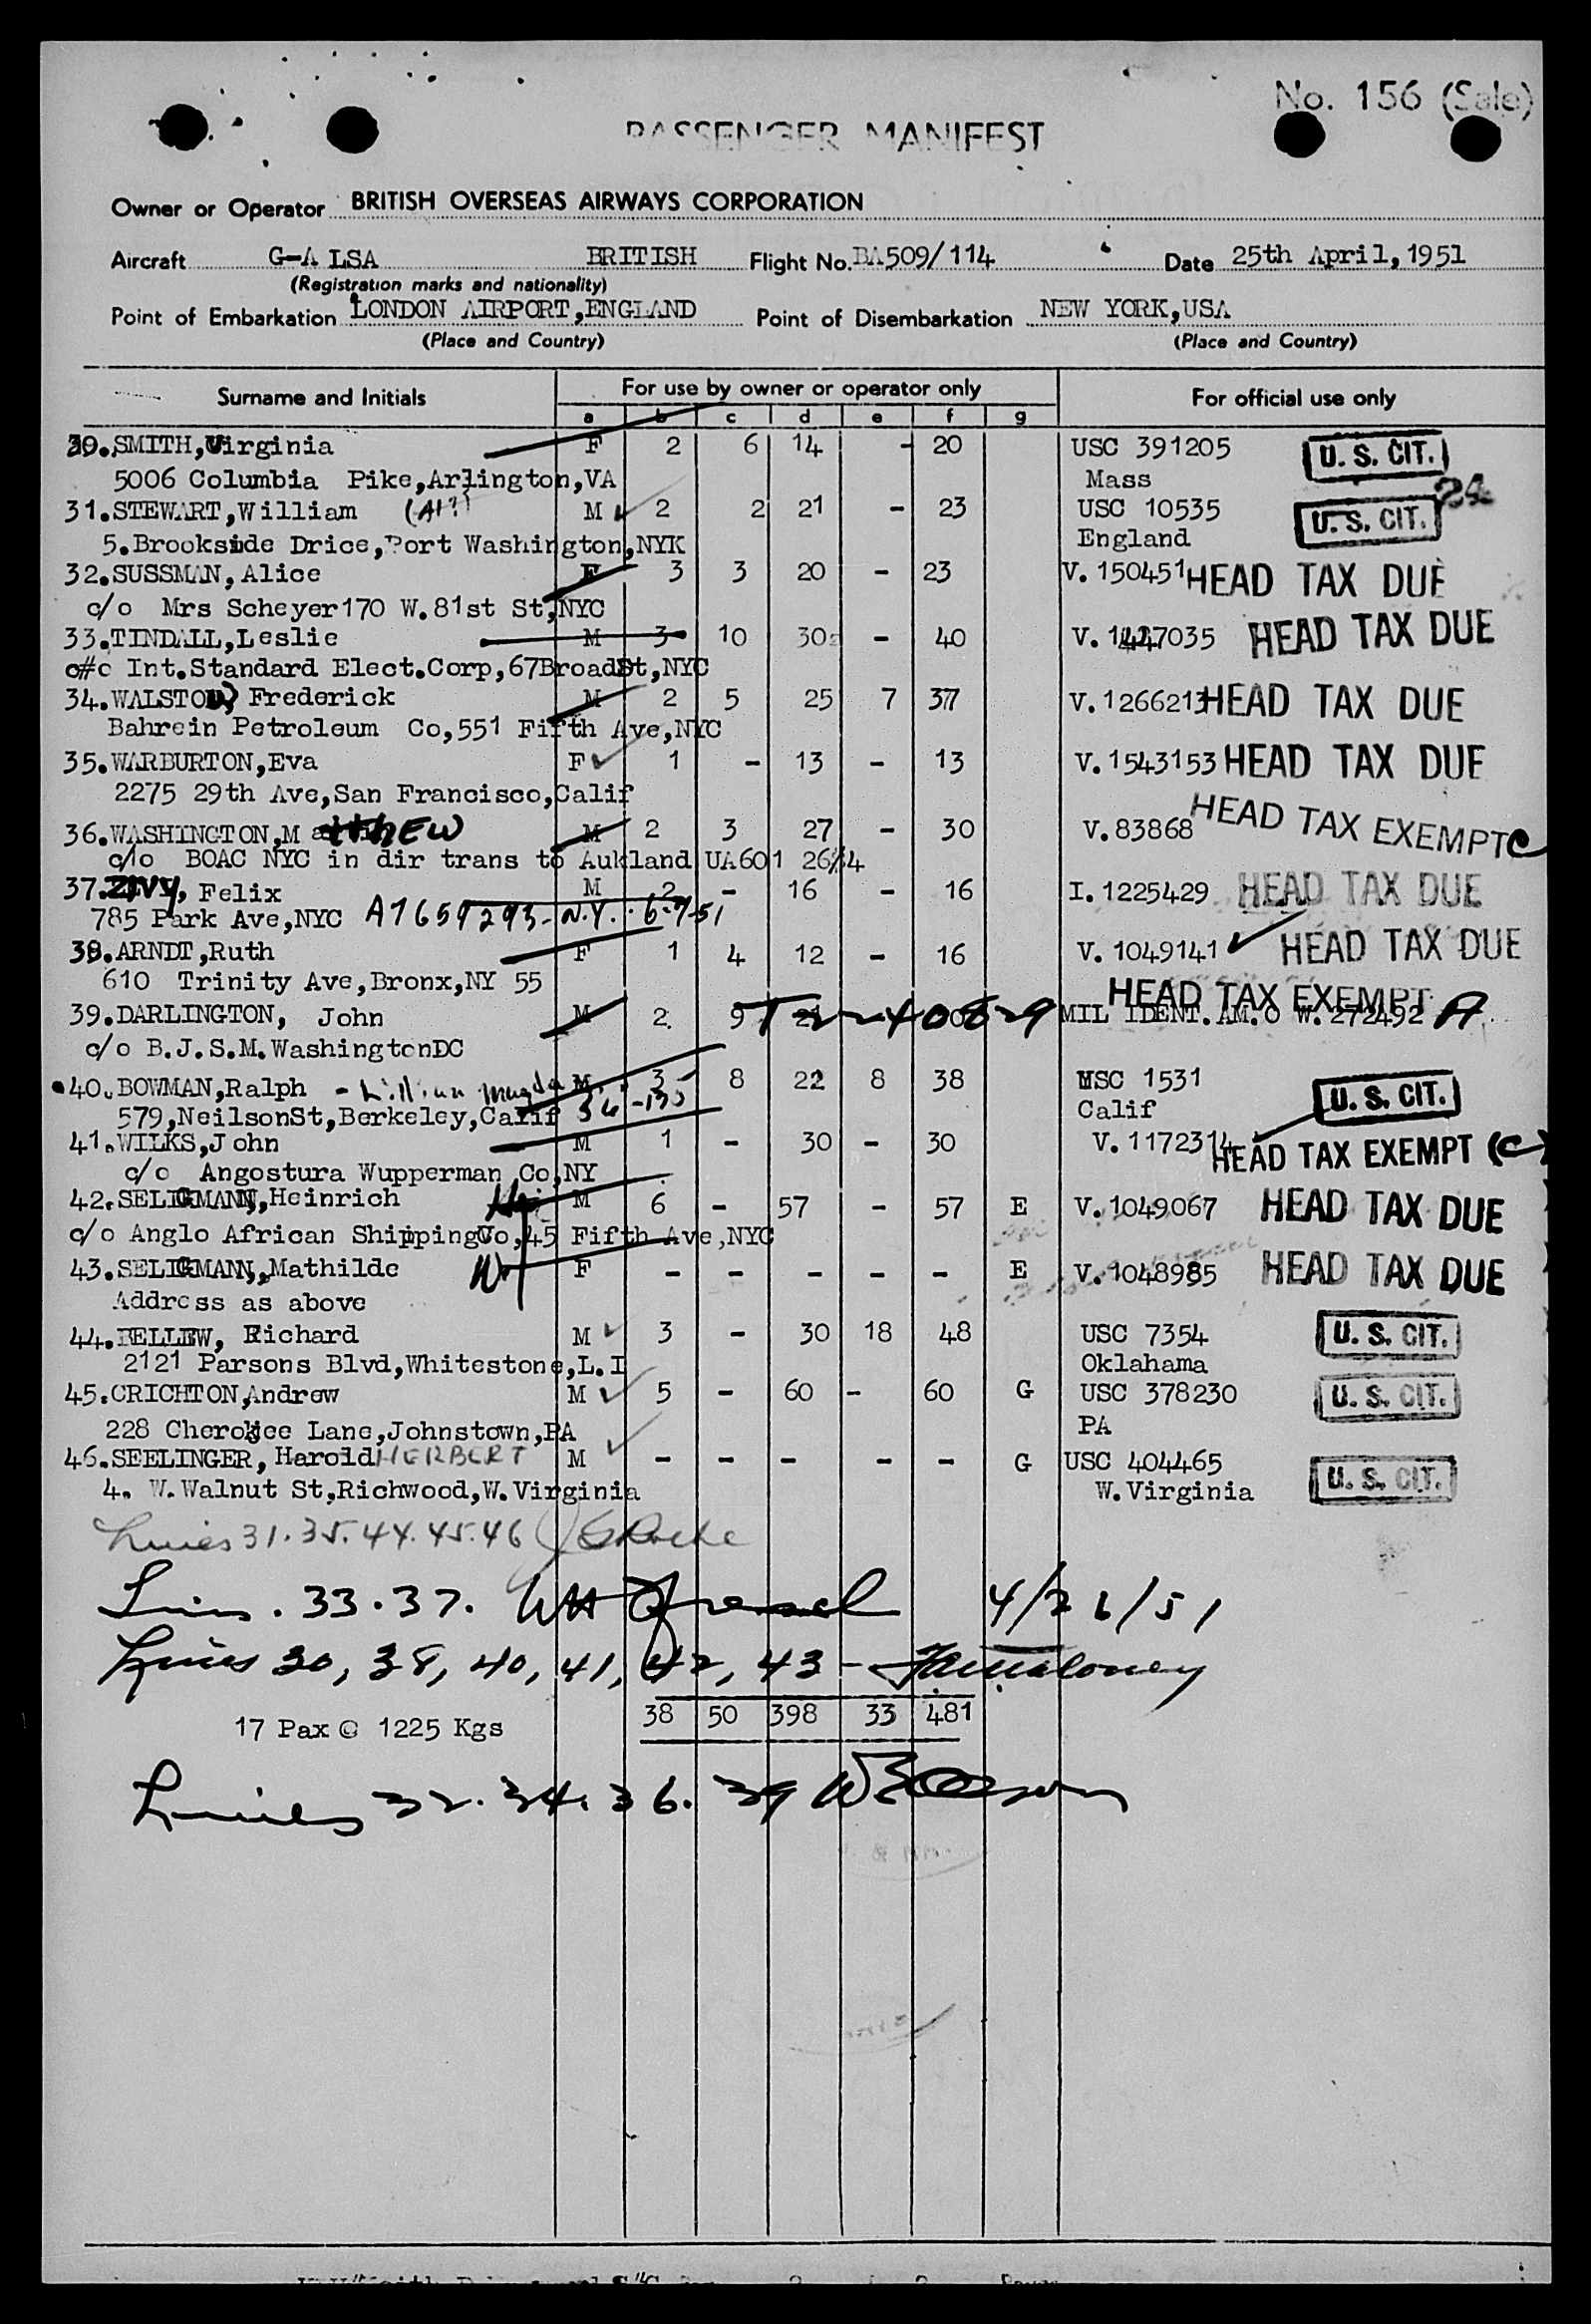 No. 156 (Sale)
PASSENGER MANIFEST
Owner or Operator BRITISH OVERSEAS AIRWAYS CORPORATION
Aircraft G-A LSA BRITISH Flight No. BA509/114 Date 25th April,1951
(Registration marks and nationality)
Point of Embarkation LONDON AIRPORT,ENGLAND Point of Disembarkation NEW YORK,USA
(Place and Country) (Place and Country)
Surname and Initials For use by owner or operator only For official use only
a b c d e f g
30.SMITH,Virginia F 2 6 14 - 20 USC 391205 U. S. CIT.
5006 Columbia Pike,Arlington,VA Mass
31.STEWART,William M 2 2 21 - 23 USC 10535 U. S. CIT.
5.Brookside Drice,Port Washington,NYK England
32.SUSSMAN,Alice F 3 3 20 - 23 V.150451 HEAD TAX DUE
c/o Mrs Scheyer170 W.81st St,NYC
33.TINDALL,Leslie M 3 10 30 - 40 V.1447035 HEAD TAX DUE
c/o Int.Standard Elect.Corp,67BroadSt,NYC
34.WALSTON, Frederick M 2 5 25 7 37 V.1266213 HEAD TAX DUE
Bahrein Petroleum Co,551 Fifth Ave,NYC
35.WARBURTON,Eva F 1 - 13 - 13 V.1543153 HEAD TAX DUE
2275 29th Ave,San Francisco,Calif
36.WASHINGTON,MatthEW M 2 3 27 - 30 V.83868 HEAD TAX EXEMPT C
c/o BOAC NYC in dir trans to Aukland UA601 26/4
37.ZIVY, Felix M 2 - 16 - 16 I.1225429 HEAD TAX DUE
785 Park Ave,NYC A7659293-N.Y. 6-7-51
38.ARNDT,Ruth F 1 4 12 - 16 V.1049141 HEAD TAX DUE
610 Trinity Ave,Bronx,NY 55
HEAD TAX EXEMPT
39.DARLINGTON, John M 2. 9 21 T-22-40829 MIL IDENT.AM.O W.272492 A
c/o B.J.S.M.WashingtonDC
40.BOWMAN,Ralph - Lillian Magda M 3 8 22 8 38 USC 1531 U. S. CIT.
579,NeilsonSt,Berkeley,Calif Calif
41.WILKS,John M 1 - 30 - 30 V.1172314 HEAD TAX EXEMPT (C)
c/o Angostura Wupperman Co,NY
42.SELIGMANN,Heinrich M 6 - 57 - 57 E V.1049067 HEAD TAX DUE
c/o Anglo African ShippingCo,45 Fifth Ave,NYC
43.SELIGMANN,Mathilde F - - - - - E V.1048985 HEAD TAX DUE
Address as above
44.BELLEW, Richard M 3 - 30 18 48 USC 7354 U. S. CIT.
2121 Parsons Blvd,Whitestone,L.I Oklahama
45.CRICHTON,Andrew M 5 - 60 - 60 G USC 378230 U. S. CIT.
228 Cherokee Lane,Johnstown,PA PA
46.SEELINGER,Harold HERBERT M - - - - - G USC 404465 U. S. CIT.
4. W.Walnut St,Richwood,W.Virginia W.Virginia
Lines 31.35.44.45.46
Lines . 33.37. 4/26/51
Lines 30, 38, 40, 41, 42, 43 -
38 50 398 33 481
17 Pax @ 1225 Kgs
Lines 32.34.36.39